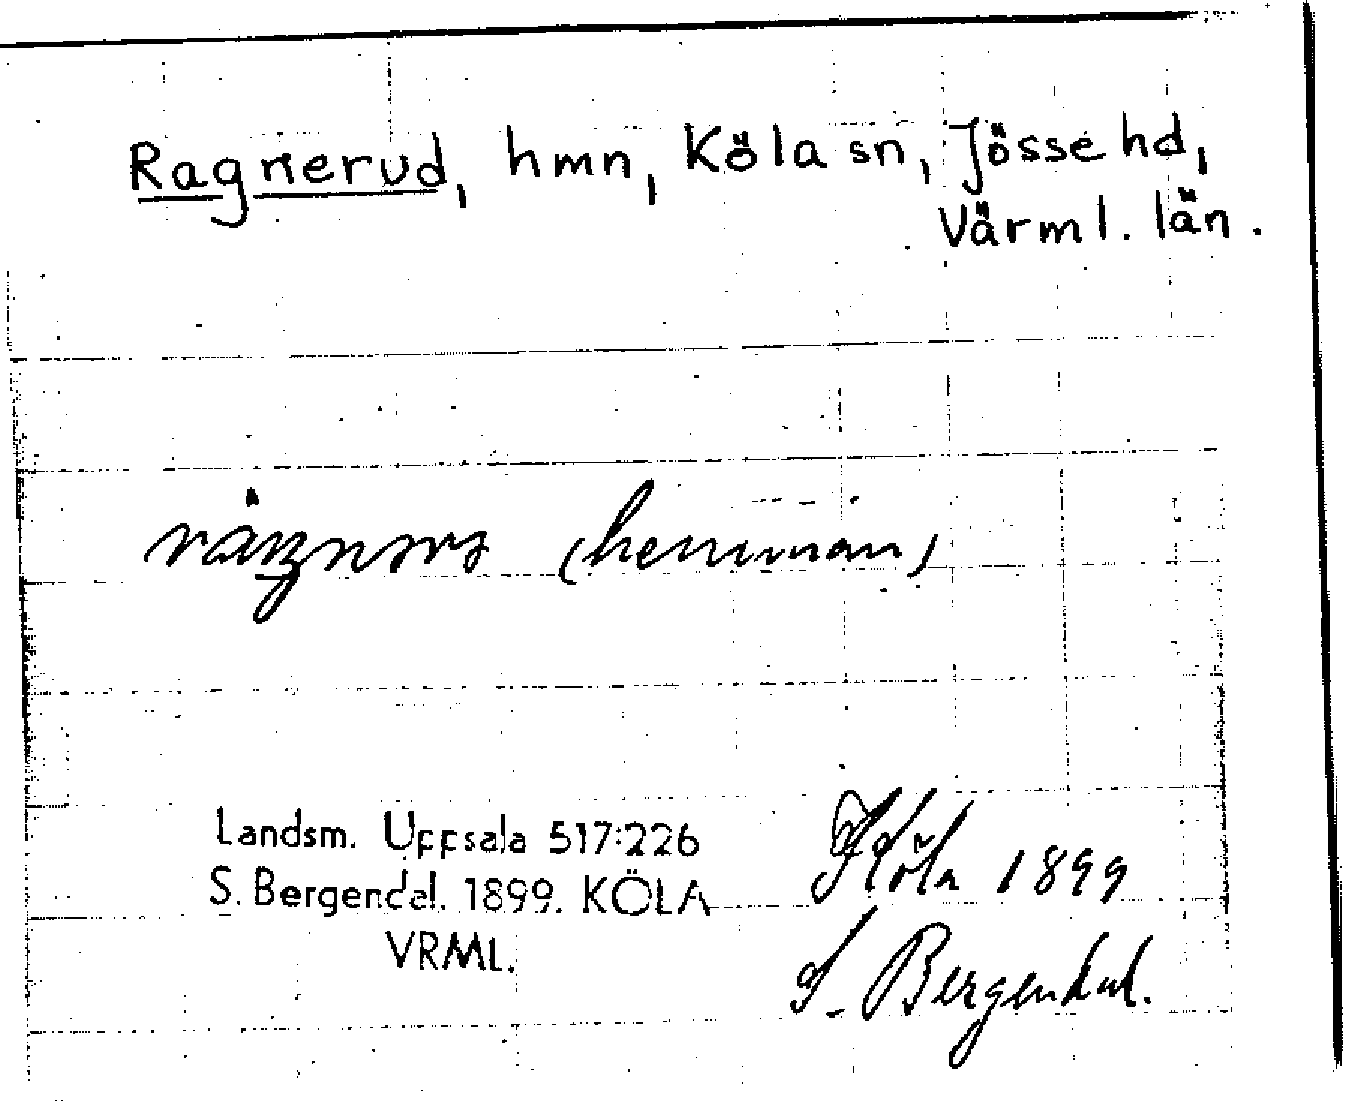 Ragnerud, hmn, Köla sn, Jösse hd,
Värml. län.
(hemman)
Landsm. Uppsala 517:226
S. Bergendal. 1899. KÖLA
VRML.
Köla 1899
S. Bergendal.